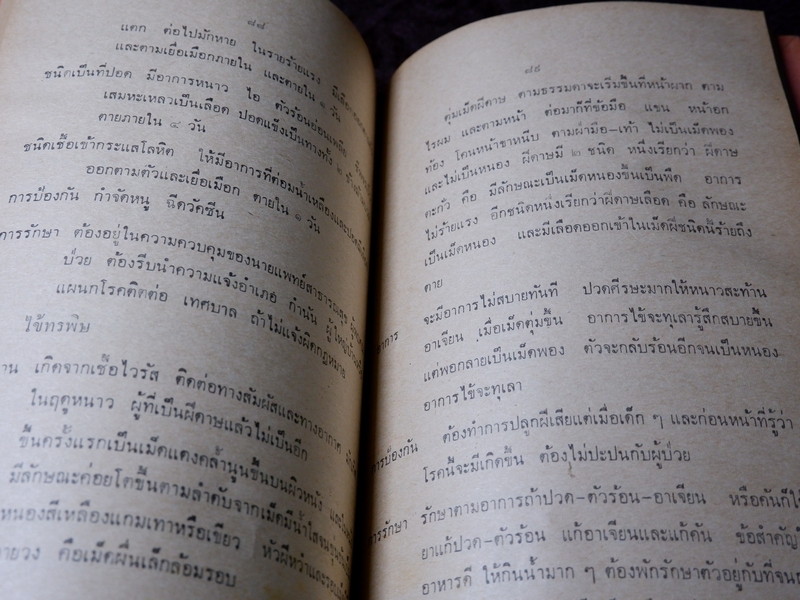 ๘๘
แตก ต่อไปมักหาย ในรายร้ายแรง
และตามเยื่อเมือกภายใน และตายใน ๑ วัน
ชนิดเป็นที่ปอด มีอาการหนาว ไอ ตัวร้อนอ่อนเพลีย
เสมหะเหลวเป็นเลือด ปอดแข็งเป็นทางทั้ง ๒ ข้าง
ตายภายใน ๔ วัน
ชนิดเชื้อเข้ากระแสโลหิต ให้มีอาการที่ต่อมน้ำเหลืองและ
ออกตามตัวและเยื่อเมือก ตายใน ๑ วัน
การป้องกัน กำจัดหนู ฉีดวัคซีน
การรักษา ต้องอยู่ในความควบคุมของนายแพทย์สาธารณสุข
ป่วย ต้องรีบนำความแจ้งอำเภอ กำนัน ผู้ใหญ่บ้าน
แผนกโรคติดต่อ เทศบาล ถ้าไม่แจ้งผิดกฎหมาย
ไข้ทรพิษ
เกิดจากเชื้อไวรัส ติดต่อทางสัมผัสและทางอากาศ
ในฤดูหนาว ผู้ที่เป็นฝีดาษแล้วไม่เป็นอีก
ขึ้นครั้งแรกเป็นเม็ดแดงคล้ำนูนขึ้นบนผิวหนัง และ
มีลักษณะค่อยโตขึ้นตามลำดับจากเม็ดมีน้ำใส
หนองสีเหลืองแกมเทาหรือเขียว หัวฝีหว๋าและ
คือเม็ดผื่นเล็กล้อมรอบ
๘๙
ตุ่มเม็ดฝีดาษ ตามธรรมดาจะเริ่มขึ้นที่หน้าผาก ตาม
ไรผม และตามหน้า ต่อมาก็ที่ข้อมือ แขน หน้าอก
ท้อง โคนหน้าขาหนีบ ตามฝ่ามือ-เท้า ไม่เป็นเม็ดพอง
และไม่เป็นหนอง ฝีดาษมี ๒ ชนิด หนึ่งเรียกว่า ฝีดาษ
ตะกั่ว คือ มีลักษณะเป็นเม็ดหนองขึ้นเป็นพืด อาการ
ไม่ร้ายแรง อีกชนิดหนึ่งเรียกว่าฝีดาษเลือด คือ ลักษณะ
เป็นเม็ดหนอง และมีเลือดออกเข้าในเม็ดฝีชนิดนี้ร้ายถึง
ตาย
อาการ จะมีอาการไม่สบายทันที ปวดศีรษะมากให้หนาวสะท้าน
อาเจียน เมื่อเม็ดตุ่มขึ้น อาการไข้จะทุเลารู้สึกสบายขึ้น
แต่พอกลายเป็นเม็ดพอง ตัวจะกลับร้อนอีกจนเป็นหนอง
อาการไข้จะทุเลา
การป้องกัน ต้องทำการปลูกฝีเสียแต่เมื่อเด็ก ๆ และก่อนหน้าที่รู้ว่า
โรคนี้จะมีเกิดขึ้น ต้องไม่ปะปนกับผู้ป่วย
การรักษา รักษาตามอาการถ้าปวด-ตัวร้อน-อาเจียน หรือคันก็
ยาแก้ปวด-ตัวร้อน แก้อาเจียนและแก้คัน ข้อสำคัญ
อาหารดี ให้กินน้ำมาก ๆ ต้องพักรักษาตัวอยู่กับที่จน